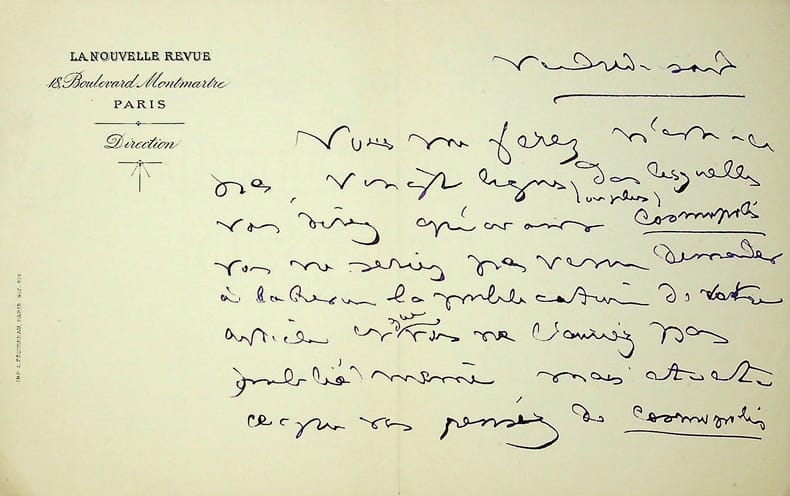 LA NOUVELLE REVUE
18, Boulevard Montmartre
PARIS
Direction
Vendredi soir
Vous me ferez n'est-ce
pas, vingt lignes (ou plus) dans lesquelles
vous direz qu'avant Cosmopolis
vous ne seriez pas venu demander
à la Revue la publication de votre
article et que vous ne l'auriez pas
publié même mais
ce que vous pensez de Cosmopolis